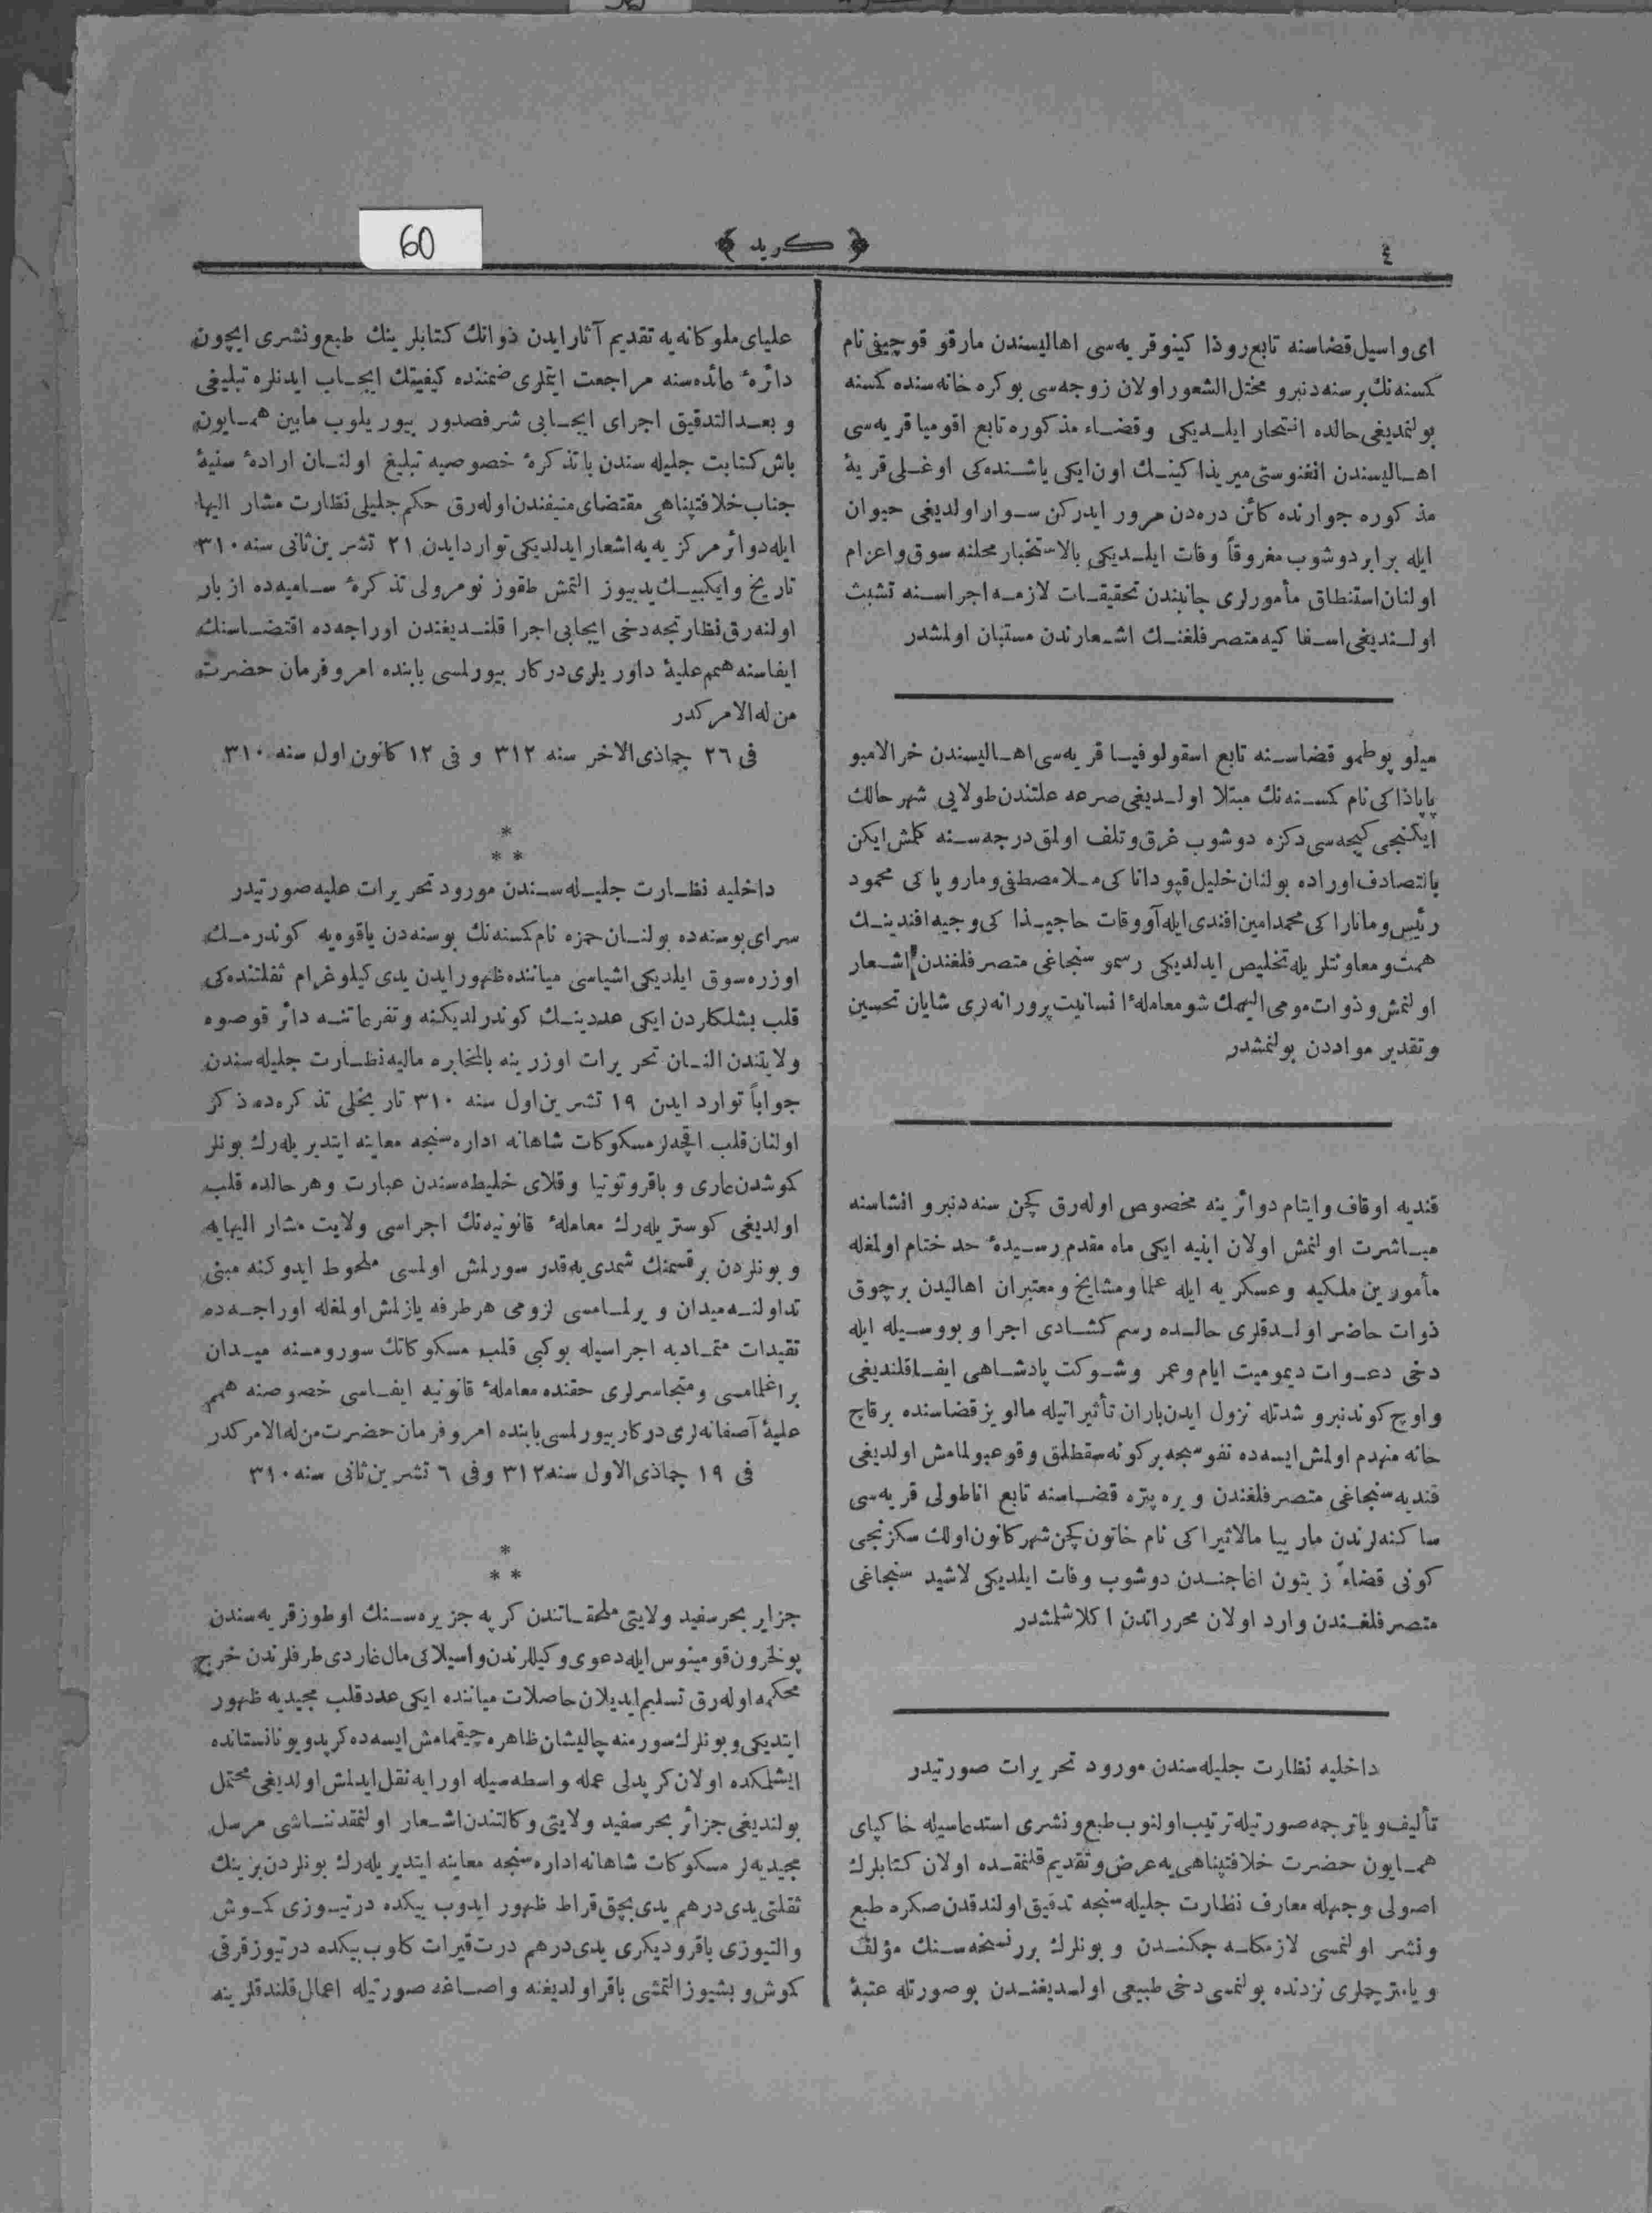 60
٤
﴿ كريد ﴾
اى واسيل قضاسنه تابع روذا كينو قريه‌سى اهاليسندن مارقو قوچينى نام
كسنه‌نك بر سنه‌دنبرو مختل الشعور اولان زوجه‌سى بو كره خانه‌سنده كسنه
بولنمديغى حالده انتحار ايلديكى وقضاء مذكوره تابع اقوميا قريه‌سى
اهاليسندن انغنوستى ميريذاكينك اون ايكى ياشنده‌كى اوغلى قريۀ
مذكوره جوارنده كائن دره‌دن مرور ايدركن سوار اولديغى حيوان
ايله برابر دوشوب مغروقاً وفات ايلديكى بالاستخبار محلنه سوق واعزام
اولنان استنطاق مأمورلرى جانبندن تحقيقات لازمه اجراسنه تشبث
اولنديغى اسفاكيه متصرفلغنك اشعارندن مستبان اولمشدر
ميلوپوطمو قضاسنه تابع اسقولوفيا قريه‌سى اهاليسندن خرالامبو
پاپاذاكى نام كسنه‌نك مبتلا اولديغى صرعه علتندن طولايى شهر حالك
ايكنجى كيجه‌سى دكزه دوشوب غرق وتلف اولمق درجه‌سنه كلمش ايكن
بالتصادف اوراده بولنان خليل قپودانا كى ملا مصطفى ومارو پا كى محمود
رئيس ومانارا كى محمد امين افندى ايله آووقات حاجيذا كى وجيه افندينك
همت ومعاونتلريله تخليص ايدلديكى رسمو سنجاغى متصرفلغندن اشعار
اولنمش وذوات مومى اليهمك شو معاملۀ انسانيت‌پرورانه‌لرى شايان تحسين
وتقدير مواددن بولنمشدر
قنديه اوقاف وايتام دوائرينه مخصوص اوله‌رق كچن سنه‌دنبرو انشاسنه
مباشرت اولنمش اولان ابنيه ايكى ماه مقدم رسيدۀ حد ختام اولمغله
مأمورين ملكيه وعسكريه ايله علما ومشايخ ومعتبران اهاليدن برچوق
ذوات حاضر اولدقلرى حالده رسم كشادى اجرا و بووسيله ايله
دخى دعوات ديموميت ايام وعمر وشوكت پادشاهى ايفا قلنديغى
واوچ كوندنبرو شدتله نزول ايدن باران تأثيراتيله مالويز قضاسنده برقاچ
خانه منهدم اولمش ايسه‌ده نفوسجه بركونه سقطلق وقوعبولمامش اولديغى
قنديه سنجاغى متصرفلغندن ويره پتره قضاسنه تابع اناطولى قريه‌سى
ساكنه‌لرندن ماريا مالاثيراكى نام خاتون كچن شهر كانون اولك سكزنجى
كونى قضاءً زيتون اغاجندن دوشوب وفات ايلديكى لاشيد سنجاغى
متصرفلغندن وارد اولان محرراتدن اكلاشلمشدر
داخليه نظارت جليله‌سندن مورود تحريرات صورتيدر
تأليف ويا ترجمه صورتيله ترتيب اولنوب طبع ونشرى استدعاسيله خاكپاى
همايون حضرت خلافتپناهى‌يه عرض وتقديم قلنمقده اولان كتابلرك
اصولى وجهله معارف نظارت جليله‌سنجه تدقيق اولندقدن صكره طبع
ونشر اولنمسى لازمكله جكندن و بونلرك بررنسخه‌سنك مؤلف
ويا مترجملرى نزدنده بولنمسى دخى طبيعى اولديغندن بوصورتله عتبۀ
علياى ملوكانه‌يه تقديم آثار ايدن ذواتك كتابلرينك طبع ونشرى ايچون
دائرۀ عائده‌سنه مراجعت ايتملرى ضمننده كيفيتك ايجاب ايدنلره تبليغى
و بعدالتدقيق اجراى ايجابى شرفصدور بيوريلوب مابين همايون
باش كتابت جليله‌سندن با تذكرۀ خصوصيه تبليغ اولنان ارادۀ سنيۀ
جناب خلافتپناهى مقتضاى منيفندن اوله‌رق حكم جليلى نظارت مشار اليها
ايله دوائر مركزيه‌يه اشعار ايدلديكى توارد ايدن ٢١ تشرين ثانى سنه ٣١٠
تاريخ وايكيبيك يديبوز التمش طقوز نومرولى تذكرۀ ساميه‌ده ازبار
اولنه‌رق نظارتجه دخى ايجابى اجرا قلنديغندن اوراجه‌ده اقتضاسنك
ايفاسنه همم عليۀ داوريلرى دركار بيورلمسى بابنده امر وفرمان حضرت
من له الامركدر
فى ٢٦ جماذى الاخر سنه ٣١٢ و فى ١٢ كانون اول سنه ٣١٠
*
* *
داخليه نظارت جليله‌سندن مورود تحريرات عليه صورتيدر
سراى بوسنه‌ده بولنان حمزه نام كسنه‌نك بوسنه‌دن ياقوه‌يه كوندرمك
اوزره سوق ايلديكى اشياسى مياننده ظهور ايدن يدى كيلوغرام ثقلتنده‌كى
قلب بشلكلردن ايكى عددينك كوندرلديكنه وتفرعاتنه دائر قوصوه
ولايتندن النان تحريرات اوزرينه بالمخابره ماليه نظارت جليله‌سندن
جواباً توارد ايدن ١٩ تشرين اول سنه ٣١٠ تاريخلى تذكره‌ده ذكر
اولنان قلب اقچه‌لر مسكوكات شاهانه اداره‌سنجه معاينه ايتديريله‌رك بونلر
كموشدن عارى و باقر وتوتيا وقلاى خليطه‌سندن عبارت وهر حالده قلب
اولديغى كوستريله‌رك معاملۀ قانونيه‌نك اجراسى ولايت مشار اليهايه
و بونلردن برقسمنك شمدى‌يه قدر سورلمش اولمسى ملحوظ ايدوكنه مبنى
تداولنه ميدان ويرلمامسى لزومى هر طرفه يازلمش اولمغله اوراجه‌ده
تقيدات متماديه اجراسيله بوكبى قلب مسكوكاتك سورومنه ميدان
براغلمامسى ومتجاسرلرى حقنده معاملۀ قانونيه ايفاسى خصوصنه همم
عليۀ آصفانه‌لرى دركار بيورلمسى بابنده امر وفرمان حضرت من له الامركدر
فى ١٩ جماذى الاول سنه ٣١٢ وفى ٦ تشرين ثانى سنه ٣١٠
*
* *
جزاير بحرسفيد ولايتى ملحقاتندن كرپه جزيره‌سنك اوطوز قريه‌سندن
قومينوس ايله دعوى وكيللرندن واسيلاكى طرفلرندن خرج
محكمه اوله‌رق تسليم ايديلان حاصلات مياننده ايكى عدد قلب مجيديه ظهور
ايتديكى و بونلرك سورمنه چاليشان ظاهره چيقمامش ايسه‌ده كريد و يونانستانده
ايشلمكده اولان كرپه‌لى عمله واسطه‌سيله اورايه نقل ايدلمش اولديغى محتمل
بولنديغى جزائر بحرسفيد ولايتى وكالتندن اشعار اولنمقدنناشى مرسل
مجيديه‌لر مسكوكات شاهانه اداره‌سنجه معاينه ايتديريله‌رك بونلردن برينك
ثقلتى يدى درهم يدى بچق قراط ظهور ايدوب بيكده درتيوزى كموش
والتيوزى باقر وديكرى يدى درهم درت قيراط كلوب بيكده درتيوز قرقى
كموش و بشيوز التمشى باقر اولديغنه واصاغه صورتيله اعمال قلندقلرينه